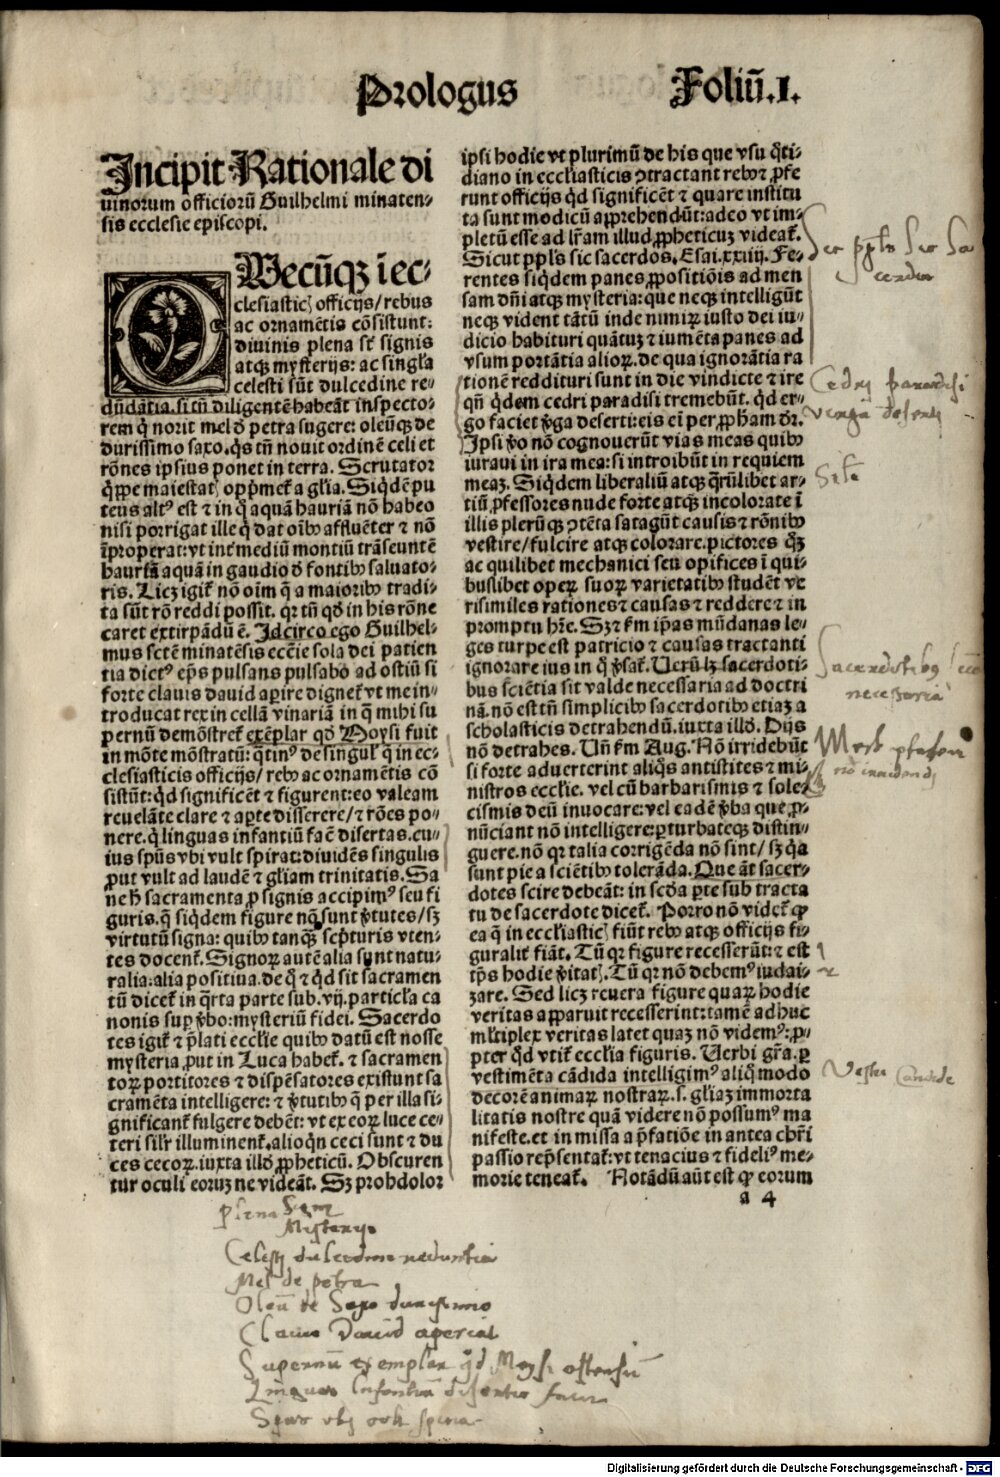 Prologus
Foliū.I.
Incipit Rationale di
uinorum officiorū Guilhelmi minaten-
sis ecclesie episcopi.
QVecūqꝫ ī ec-
clesiasticꝭ officijs/rebus
ac ornamētis cōsistunt:
diuinis plena sūt signis
atqꝫ mysterijs: ac singl̄a
celesti sūt dulcedine re-
dūdātia. si tn̄ diligentē habeāt inspecto-
rem q̇ norit mel d̄ petra sugere: oleūqꝫ de
durissimo saxo. q̇s tn̄ nouit ordinē celi et
rōnes ipsius ponet in terra. Scrutator
q̇ppe maiestatꝭ opp̄met̄ a gl̄ia. Siq̇dē pu
teus altꝰ est ⁊ in q̇ aquā hauriā nō habeo
nisi porrigat ille q̇ dat oībꝰ affluēter ⁊ nō
īproperat: vt int̄ mediū montiū trāseuntē
hauriā aquā in gaudio d̄ fontibꝰ saluato-
ris. Licꝫ igit̄ nō oīm q̄ a maioribꝰ tradi-
ta sūt rō reddi possit. qꝛ tn̄ qd̄ in his rōne
caret extirpādū ē. Idcirco ego Guilhel-
mus sctē minatēsis eccl̄ie sola dei patien
tia dictꝰ ep̄s pulsans pulsabo ad ostiū si
forte clauis dauid aꝑire dignet̄ vt me in-
troducat rex in cellā vinariā in q̄ mihi su
pernū demōstret̄ exēplar qd̄ Moysi fuit
in mōte mōstratū: q̄tinꝰ de singul̓ q̄ in ec-
clesiasticis officijs/rebꝰ ac ornamētis cō
sistūt: q̇d significēt ⁊ figurent: eo valeam
reuelāte clare ⁊ aꝑte disserere/⁊ rōes po-
nere. q̇ linguas infantiū facē disertas. cu-
ius spūs vbi vult spirat: diuidēs singulis
ꝓut vult ad laudē ⁊ gl̄iam trinitatis. Sa
ne h̄ sacramenta ꝓ signis accipimꝰ seu fi
guris. q̄ siq̇dem figure nō sunt v̓tutes/sꝫ
virtutū signa: quibꝰ tanqꝫ̄ scp̄turis vten-
tes docent̄. Signoꝝ autē alia sunt natu-
ralia: alia positiua. de q̇ ⁊ q̇d sit sacramen
tū dicet̄ in q̄rta parte sub. vij. particl̄a ca
nonis suꝑ v̓bo: mysteriū fidei. Sacerdo
tes igit̄ ⁊ p̄lati eccl̄ie quibꝰ datū est nosse
mysteria ꝓut in Luca habet̄. ⁊ sacramen
toꝝ portitores ⁊ dispēsatores existunt sa
cramēta intelligere: ⁊ v̓tutibꝰ q̄ per illa si-
gnificant̄ fulgere debēt: vt ex eoꝝ luce ce-
teri sil̓r illuminent̄. alioqn̄ ceci sunt ⁊ du
ces cecoꝝ. iuxta illd̓ ꝓpheticū. Obscuren
tur oculi eorum ne videāt. Sꝫ prohdolor
ipsi hodie vt plurimū de his que vsu q̄ti-
diano in eccl̄iasticis ↄtractant rebꝰ ⁊ ꝓfe
runt officijs q̇d significēt ⁊ quare institu
ta sunt modicū apprehendūt: adeo vt im-
pletū esse ad lr̄am illud ꝓpheticuꝫ videat̄.
Sicut ppl̄s sic sacerdos. Esai. xxiiij. Fe-
rentes siq̇dem panes ꝓpositiōis ad men
sam dn̄i atqꝫ mysteria: que neqꝫ intelligūt
neqꝫ vident tātū inde nimiꝝ iusto dei iu-
dicio habituri quātuꝫ ⁊ iumēta panes ad
vsum portātia alioꝝ. de qua ignorātia ra
tionē reddituri sunt in die vindicte ⁊ ire
qn̄ q̇dem cedri paradisi tremebūt. q̇d er-
go faciet v̓ga deserti: eis ei per ꝓpham dr̄.
Ipsi v̓o nō cognouerūt vias meas quibꝰ
iuraui in ira mea: si introibūt in requiem
meaꝫ. Siq̇dem liberaliū atqꝫ q̄rūlibet ar-
tiū ꝓfessores nude forte atqꝫ incolorate ī
illis plerūqꝫ ↄtēta satagūt causis ⁊ rōnibꝰ
vestire/fulcire atqꝫ colorare. pictores q̇ꝫ
ac quilibet mechanici seu opifices ī qui-
buslibet opeꝝ suoꝝ varietatibꝰ studēt ve
risimiles rationes ⁊ causas ⁊ reddere ⁊ in
promptu hr̄e. Sꝫ ⁊ fm ip̄as mūdanas le-
ges turpe est patricio ⁊ causas tractanti
ignorare ius in q̇ v̓sat̄. Uerū lꝫ sacerdoti-
bus sciētia sit valde necessaria ad doctri
nā. nō est tn̄ simplicibꝰ sacerdotibꝰ etiaꝫ a
scholasticis detrahendū. iuxta illd̓. Dijs
nō detrahes. Un̄ fm Aug. Nō irridebūt
si forte aduerterint aliq̇s antistites ⁊ mi-
nistros eccl̄ie. vel cū barbarismis ⁊ sole-
cismis deū inuocare: vel eadē v̓ba que ꝓ-
nūciant nō intelligere: ꝑturbateqꝫ distin-
guere. nō qꝛ talia corrigēda nō sint/sꝫ q̇a
sunt pie a sciētibꝰ tolerāda. Que āt sacer-
dotes scire debeāt: in scd̄a ꝑte sub tracta
tu de sacerdote dicet̄. Porro nō videt̄ ꝙ
ea q̄ in eccl̄iasticꝭ fiūt rebꝰ atqꝫ officijs fi-
guralit̄ fiāt. Tū qꝛ figure recesserūt: ⁊ est
tp̄s hodie v̓itatꝭ. Tū qꝛ nō debemꝰ iudai-
zare. Sed licꝫ reuera figure quaꝝ hodie
veritas apparuit recesserint: tamē adhuc
ml̓tiplex veritas latet quaꝫ nō videmꝰ: ꝓ-
pter q̇d vtit̄ eccl̄ia figuris. Uerbi gr̄a. ꝑ
vestimēta cādida intelligimꝰ aliq̇ modo
decorē animaꝝ nostraꝝ. s. gl̄iaꝫ immorta
litatis nostre quā videre nō possumꝰ ma
nifeste. et in missa a p̄fatiōe in antea chr̄i
passio rep̄sentat̄: vt tenacius ⁊ fideliꝰ me-
morie teneat̄. Notādū aūt est ꝙ eorum
a 4
Sic ppl̄s sic sa
cerdos
Cedri paradisi
virga deserti
Sacerdotibꝰ
necessaria
nō irridendi
Vestes candide
plena
Mysterijs
Celesti dulcedine
Mel de petra
Oleū de Saxo durissimo
Clauis Dauid aperiat
Supernū exemplar qd Moysi ostensū
Linguas Infantiū disertas
Digitalisierung gefördert durch die Deutsche Forschungsgemeinschaft - DFG